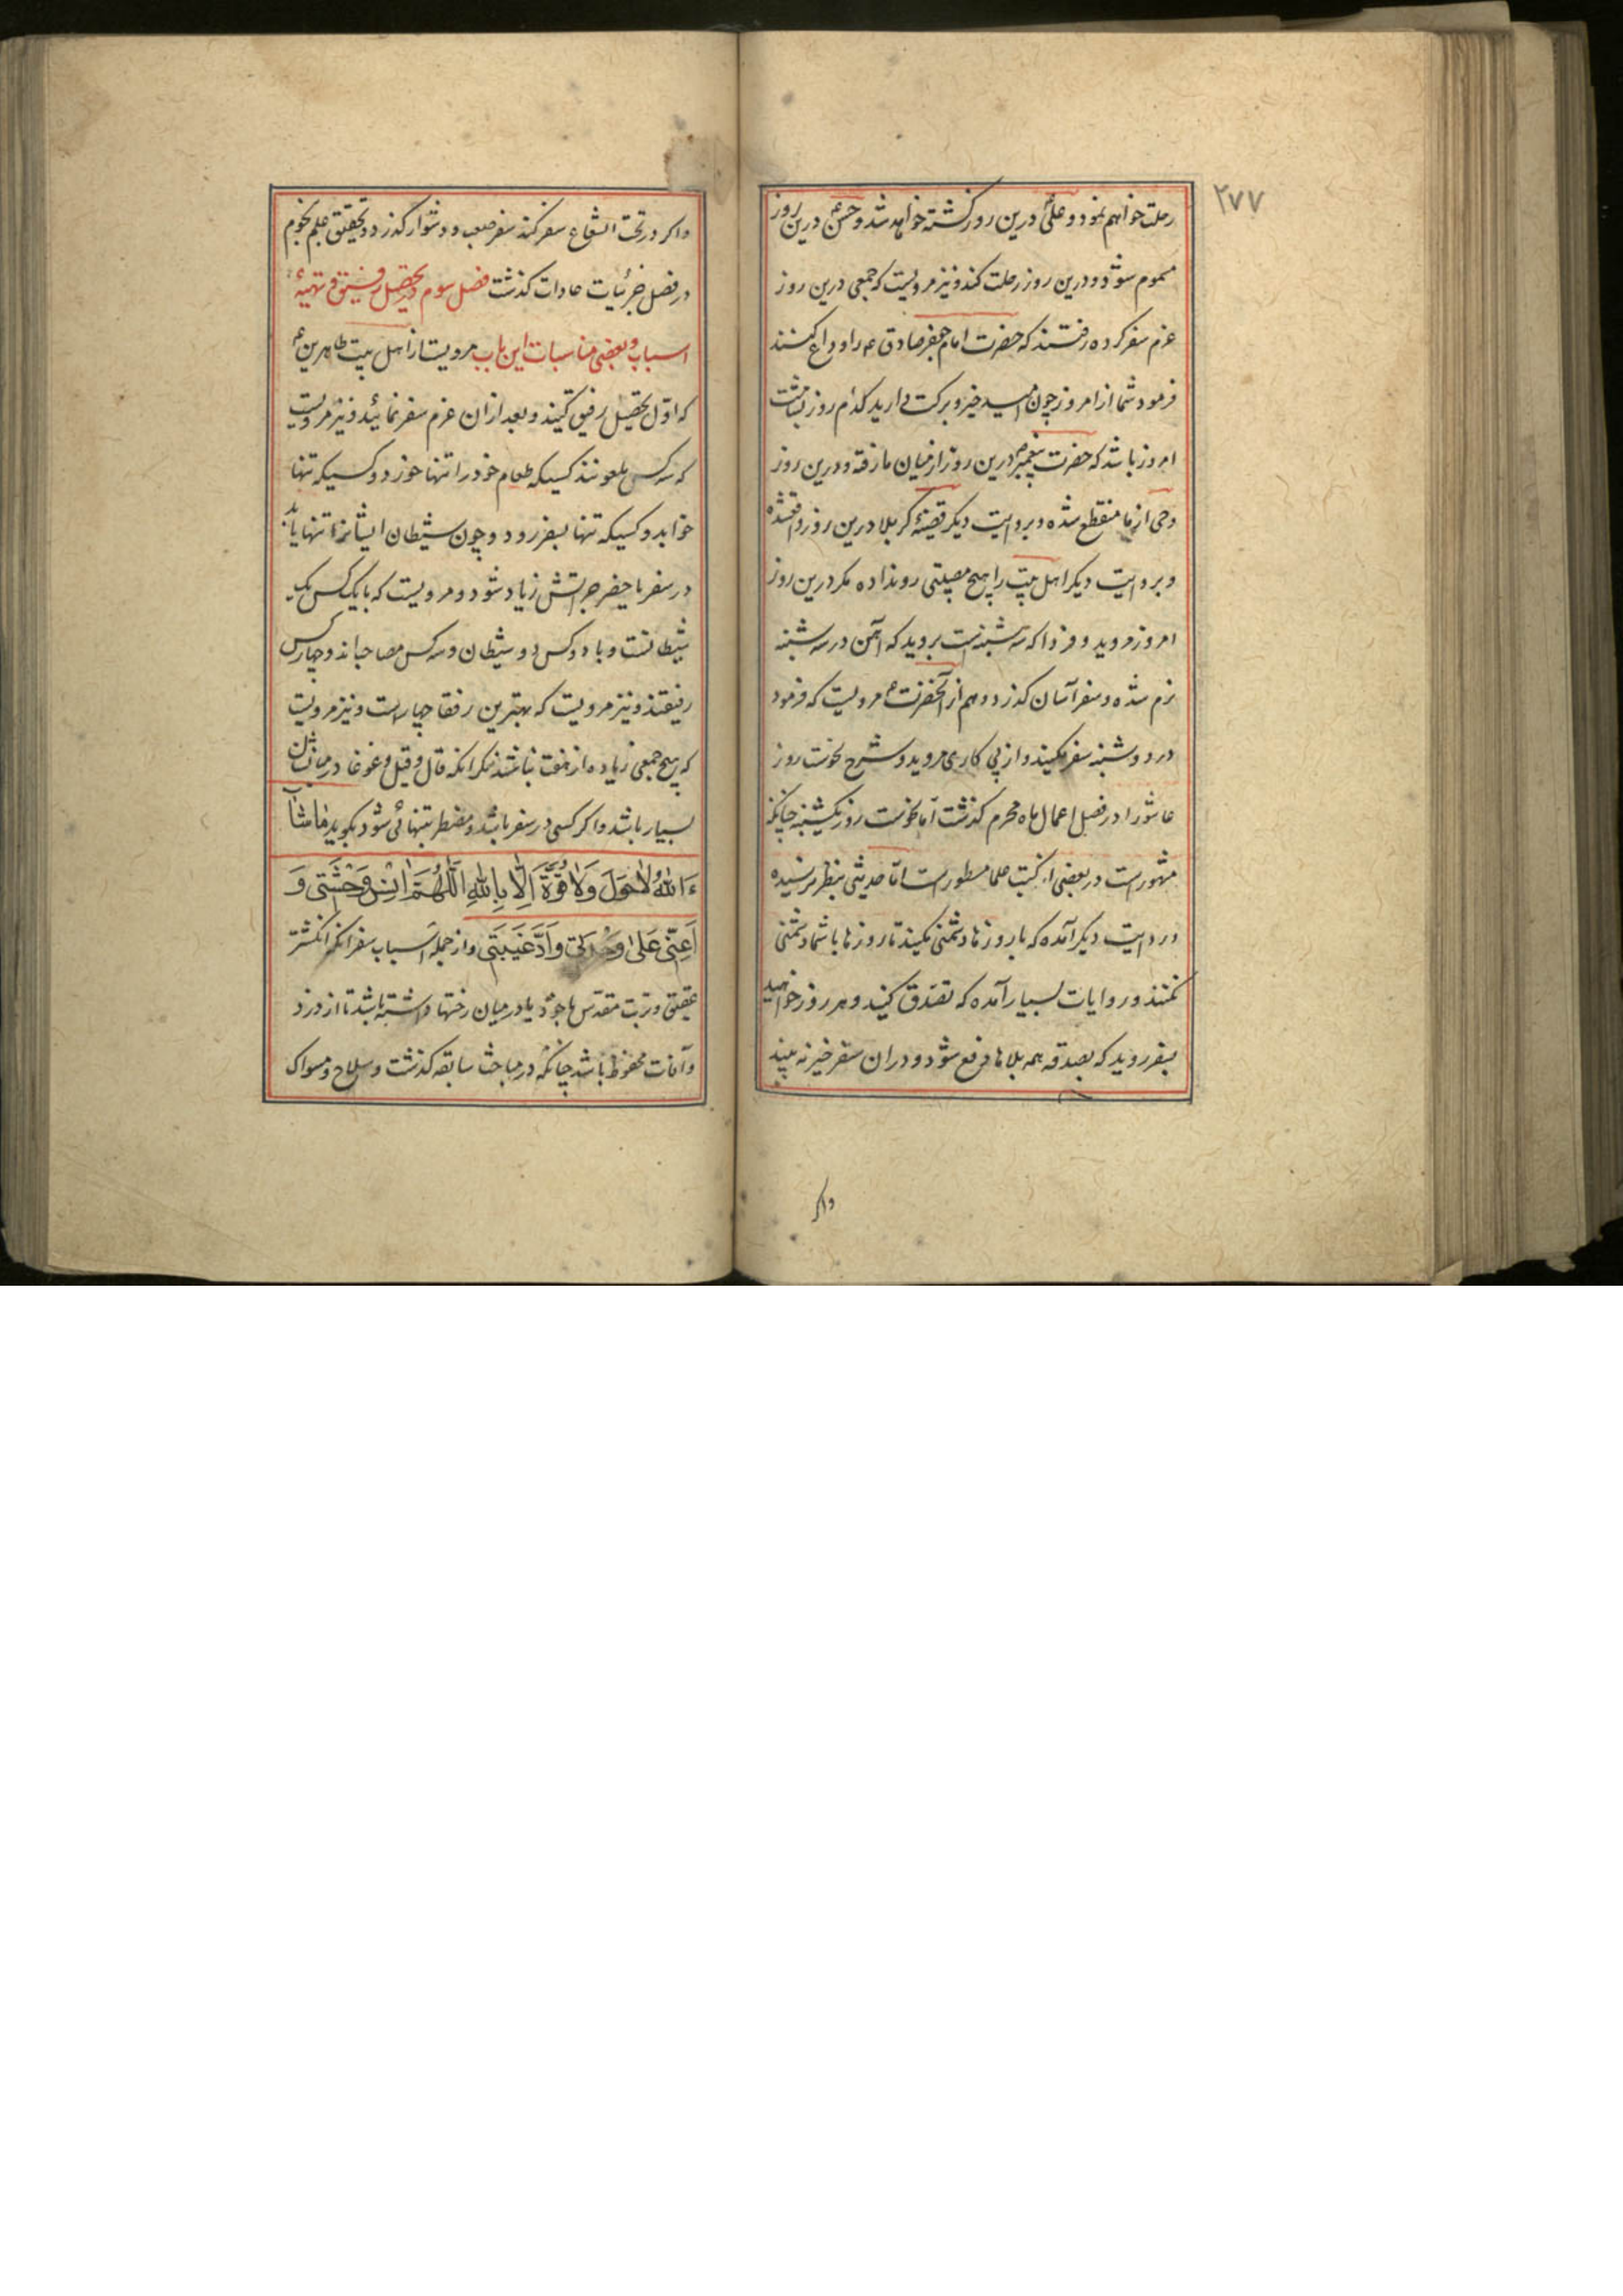 ۲۷۷
رحلت خواهم نمود و علی درین روز کشته خواهد شد و حسن درین روز
مسموم شود و درین روز رحلت کند و نیز مرویست که جمعی درین روز
عزم سفر کرده رفتند که حضرت امام جعفر صادق ع را وداع کنند
فرمود شما از امروز چون امید خیر و برکت دارید کدام روز بنامت
امروز باشد که حضرت پیغمبر درین روز از میان ما رفته و درین روز
وحی از ما منقطع شده و بروایت دیگر قضیهٔ کربلا درین روز واقعشده
و بروایت دیگر اهل بیت را هیچ مصیبتی رونداده مگر درین روز
امروز مروید و فردا که سه شنبه است بروید که آهن در سه شنبه
نرم شده و سفر آسان گذرد و هم از آنحضرت ع مرویست که فرمود
در دوشنبه سفر مکنید و از پی کاری مروید و شرح نحوست روز
عاشورا در فصل اعمال ماه محرم گذشت اما نحوست روز یکشنبه چنانکه
مشهور است در بعضی از کتب علما مسطور است اما حدیثی بنظر نرسیده
و روایت دیگر آمده که با روزها دشمنی مکنید تا روزها با شما دشمنی
نکنند و روایات بسیار آمده که تصدق کنید و هر روز خواهید
بسفر روید که بصدقه همه بلاها دفع شود و دران سفر خیر نه بیند
واکر
واکر در تحت الشعاع سفر کند سفر صعب و دشوار گذرد و تحقیق علم نجوم
در فصل جزئیات عادات گذشت فصل سوم در تحصیل رفیق و تهیهٔ
اسباب و بعضی مناسبات این باب مرویست از اهل بیت طاهرین ع
که اول تحصیل رفیق کنید و بعد ازان عزم سفر نمائید و نیز مرویست
که سه کس ملعونند کسیکه طعام خود را تنها خورد و کسیکه تنها
خوابد و کسیکه تنها بسفر رود و چون شیطان ایشانرا تنها یابد
در سفر یا حضر جراتش زیاد شود و مرویست که با یک کس یک
شیطانست و با دو کس دو شیطان و سه کس مصاحباند و چهار کس
رفیقند و نیز مرویست که بهترین رفقا چهار است و نیز مرویست
که هیچ جمعی زیاده از هفت نباشند مگر انکه قال و قیل و غوغا در میانشان
بسیار باشد و اگر کسی در سفر باشد و مضطر بتنهائی شود بگوید ما شآ
ءَ اللّٰهُ لاٰحَوْلَ وَلاٰ قُوَّةَ اِلّاٰ بِاللّٰهِ اَللّٰهُمَّ اٰنِسْ وَحْشَتی وَ
اَعِنّی عَلیٰ وَحْدَتی وَاَدِّ غَیْبَتی و از جمله اسباب سفر انکه انکشتر
عقیق و تربت مقدس با خود یا در میان رختها داشته باشد تا از دزد
و آفات محفوظ باشد چنانکه در مباحث سابقه گذشت و سلاح و مسواک